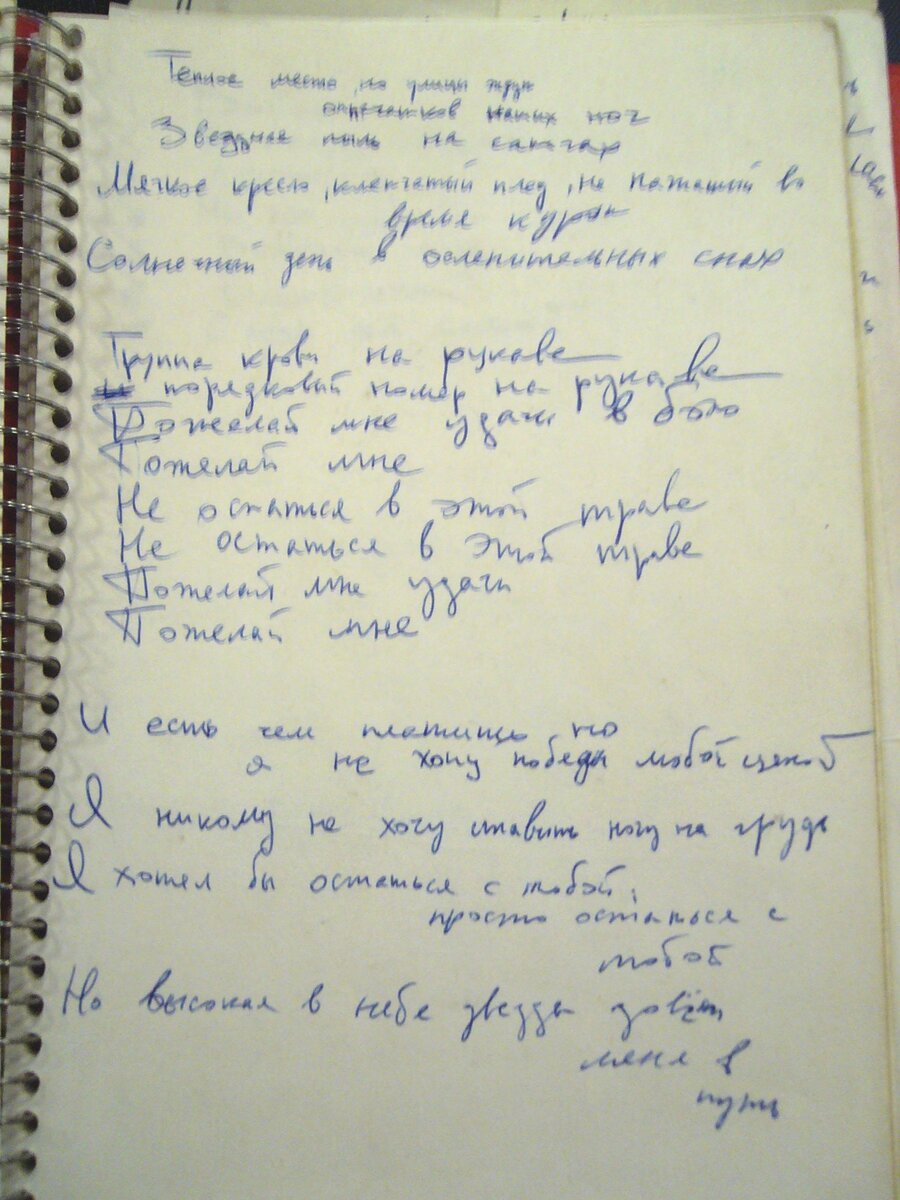 Теплое место, но улицы ждут
отпечатков наших ног
Звездная пыль на сапогах
Мягкое кресло, клетчатый плед, не нажатый во
время курок
Солнечный день в ослепительных снах
Группа крови на рукаве
порядковый номер на рукаве
Пожелай мне удачи в бою
Пожелай мне
Не остаться в этой траве
Не остаться в этой траве
Пожелай мне удачи
Пожелай мне
И есть чем платить но
я не хочу победы любой ценой
Я никому не хочу ставить ногу на грудь
Я хотел бы остаться с тобой,
просто остаться с
тобой
Но высокая в небе звезда зовет
меня в
путь